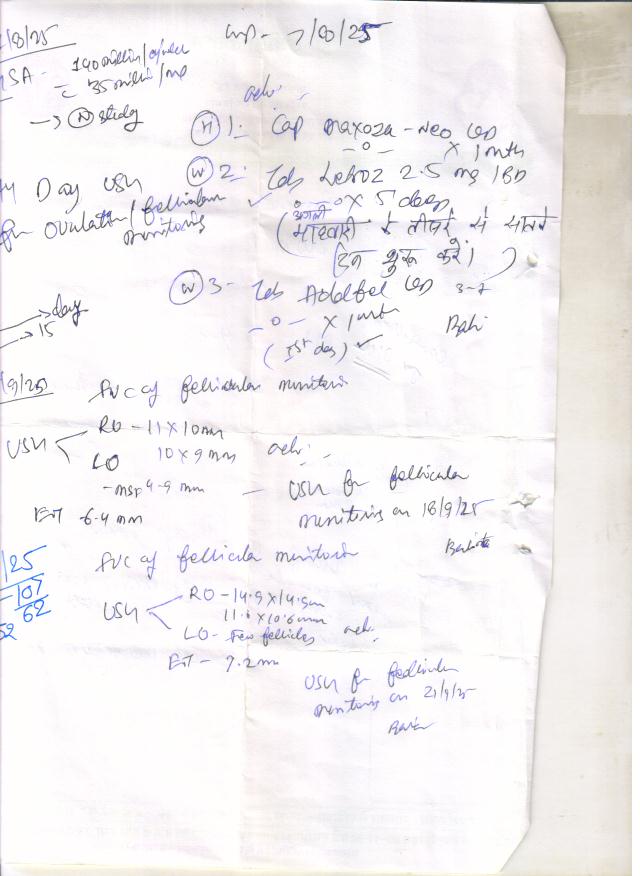 /8/25
Lmp - 7/8/25
SA - 140 million/ejacu
= 35 million/ml
→ (N) study
adv:
(H) 1: Cap Maxoza - Neo OD
-o- x 1 mth
(W) 2: Tab Letroz 2.5 mg 1BD
-o- x 5 days
(अगली माहवारी के तीसरे से सातवे
दिन शुरू करें।)
Day USG
for Ovulation / follicular
monitoring
(W) 3- Tab Addfol OD 3-7
-o- x 1 mth
(1st day)
→ day
→ 15
/9/25
f/u c/o follicular monitoring
USG
RO - 11 x 10 mm
LO 10 x 9 mm
- msp 4.9 mm
ET 6.4 mm
adv:
- USG for follicular
monitoring on 18/9/25
/25
107
62
52
f/u c/o follicular monitoring
USG
RO - 14.9 x 14.9mm
11.1 x 10.6 mm
LO - few follicles
ET - 7.2 mm
adv:
USG for follicular
monitoring on 21/9/25